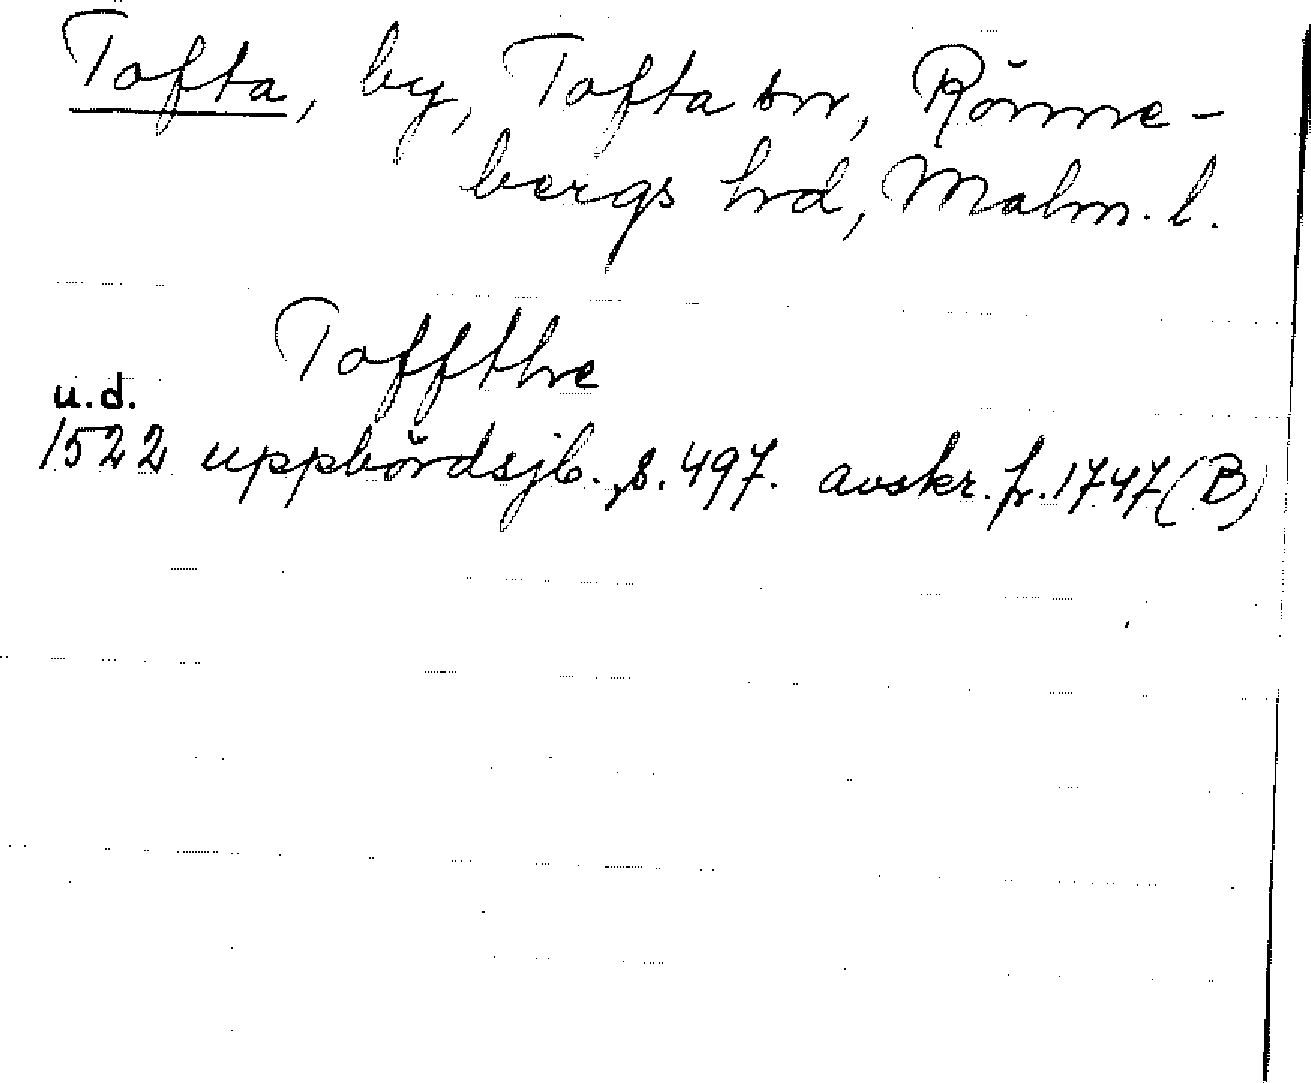 Tofta, by, Tofta sn, Rönne-
bergs hrd, Malm. l.
Toffthe
u.d.
1522 uppbördsjb., s. 497. avskr. fr. 1747 (B)